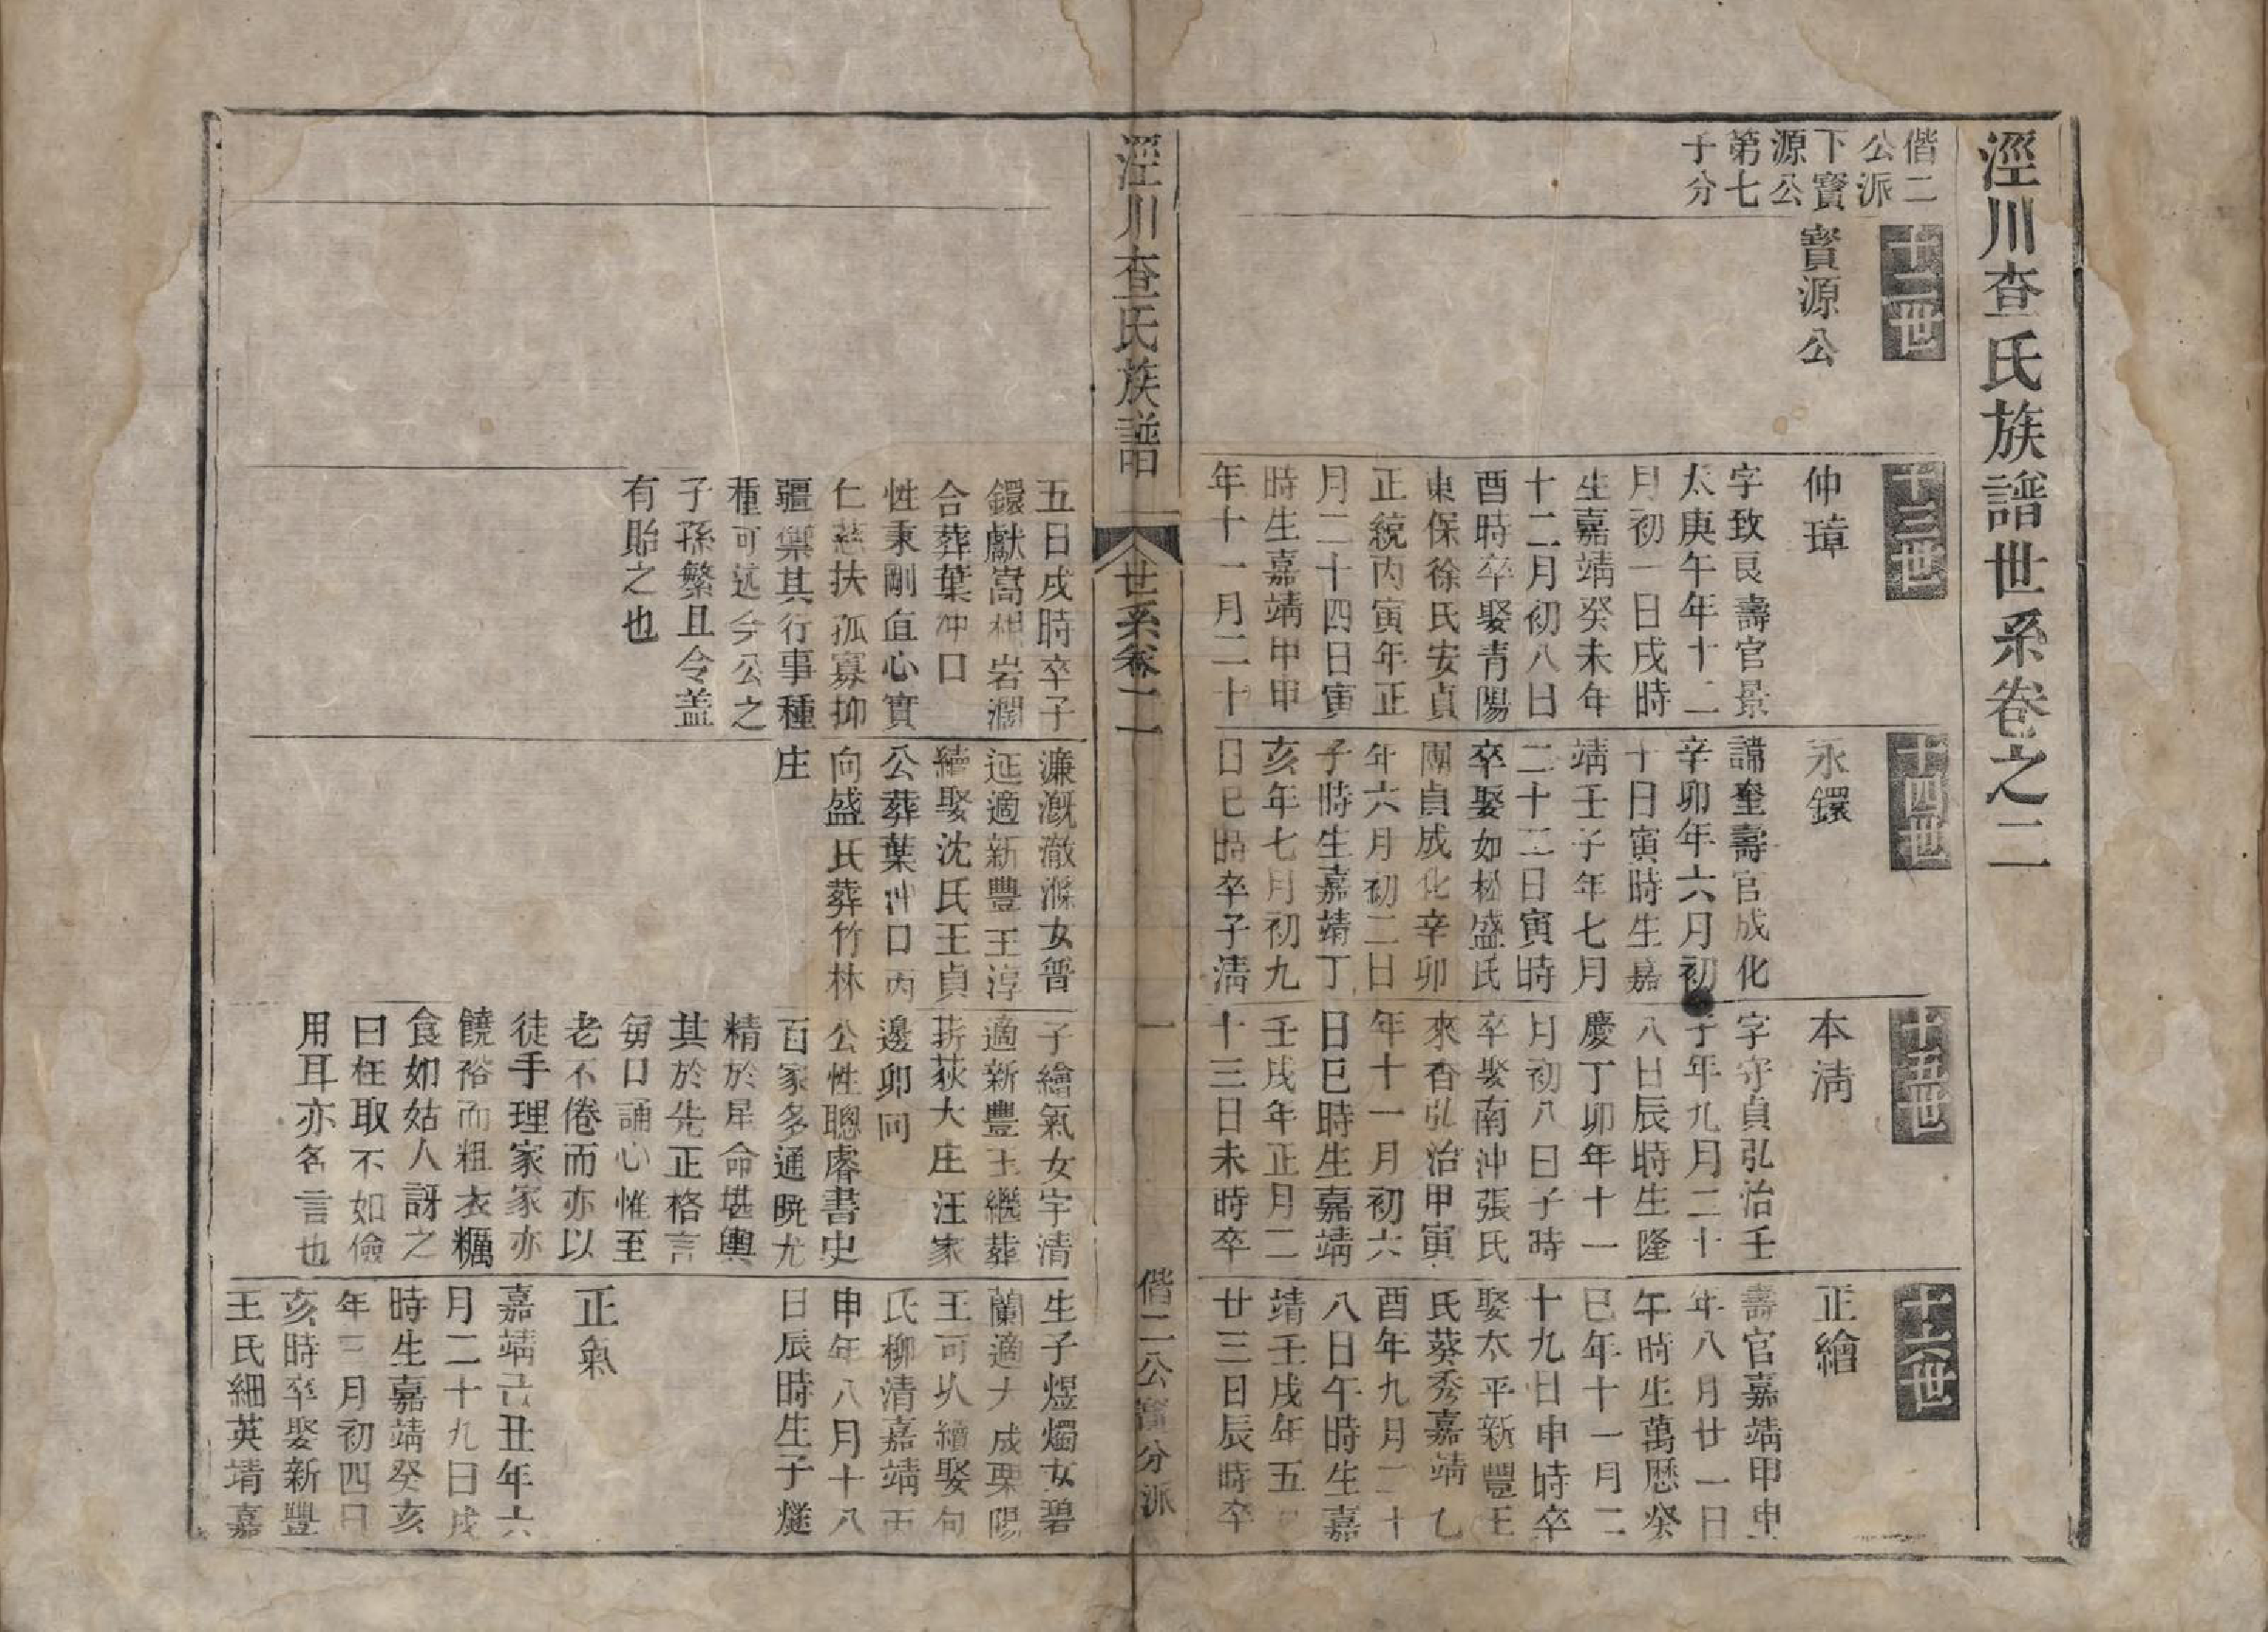 涇川查氏族譜世系卷之二
偕二
公派
下寳
源公
第七
子分
十二世
寳源公
十三世
仲璋
字致艮壽官景
太庚午年十二
月初一日戌時
生嘉靖癸未年
十二月初八日
酉時卒娶青陽
東保徐氏安貞
正統丙寅年正
月二十四日寅
時生嘉靖甲申
年十一月二十
五日戌時卒子
鐶獻嵩相岩瀾
合葬葉冲口
性秉剛直心實
仁慈扶孤寡抑
疆禦其行事種
種可述今公之
子孫繁且令盖
有貽之也
十四世
永鐶
諱奎壽官成化
辛卯年六月初
十日寅時生嘉
靖壬子年七月
二十三日寅時
卒娶如松盛氏
團貞成化辛卯
年六月初二日
子時生嘉靖丁
亥年七月初九
日巳時卒子淸
濂溉澈滌女晉
証適新豐王淳
續娶沈氏王貞
公葬葉冲口丙
向盛氏葬竹林
庄
十五世
本淸
字守貞弘治壬
子年九月二十
八日辰時生隆
慶丁卯年十一
月初八日子時
卒娶南沖張氏
來香弘治甲寅
年十一月初六
日巳時生嘉靖
壬戌年正月二
十三日未時卒
子繪氣女宇清
適新豐王繼葬
荻大庄汪家
邊卯向
公性聰睿書史
百家多通曉尤
精於星命堪輿
其於先正格言
每口誦心惟至
老不倦而亦以
徒手理家家亦
饒裕而粗衣糲
食如姑人訝之
曰枉取不如儉
用耳亦名言也
十六世
正繪
壽官嘉靖甲申
年八月廿一日
午時生萬歷癸
巳年十一月二
十九日申時卒
娶太平新豐王
氏葵秀嘉靖乙
酉年九月二十
八日午時生嘉
靖壬戌年五
廿三日辰時卒
生子煜燭女碧
蘭適大成栗陽
王可㠯續娶句
氏柳清嘉靖丙
申年八月十八
日辰時生子燧
正氣
嘉靖己丑年六
月二十九日戌
時生嘉靖癸亥
年三月初四日
亥時卒娶新豐
王氏細英靖嘉
涇川查氏族譜
世系卷二
一
偕二公寳分派